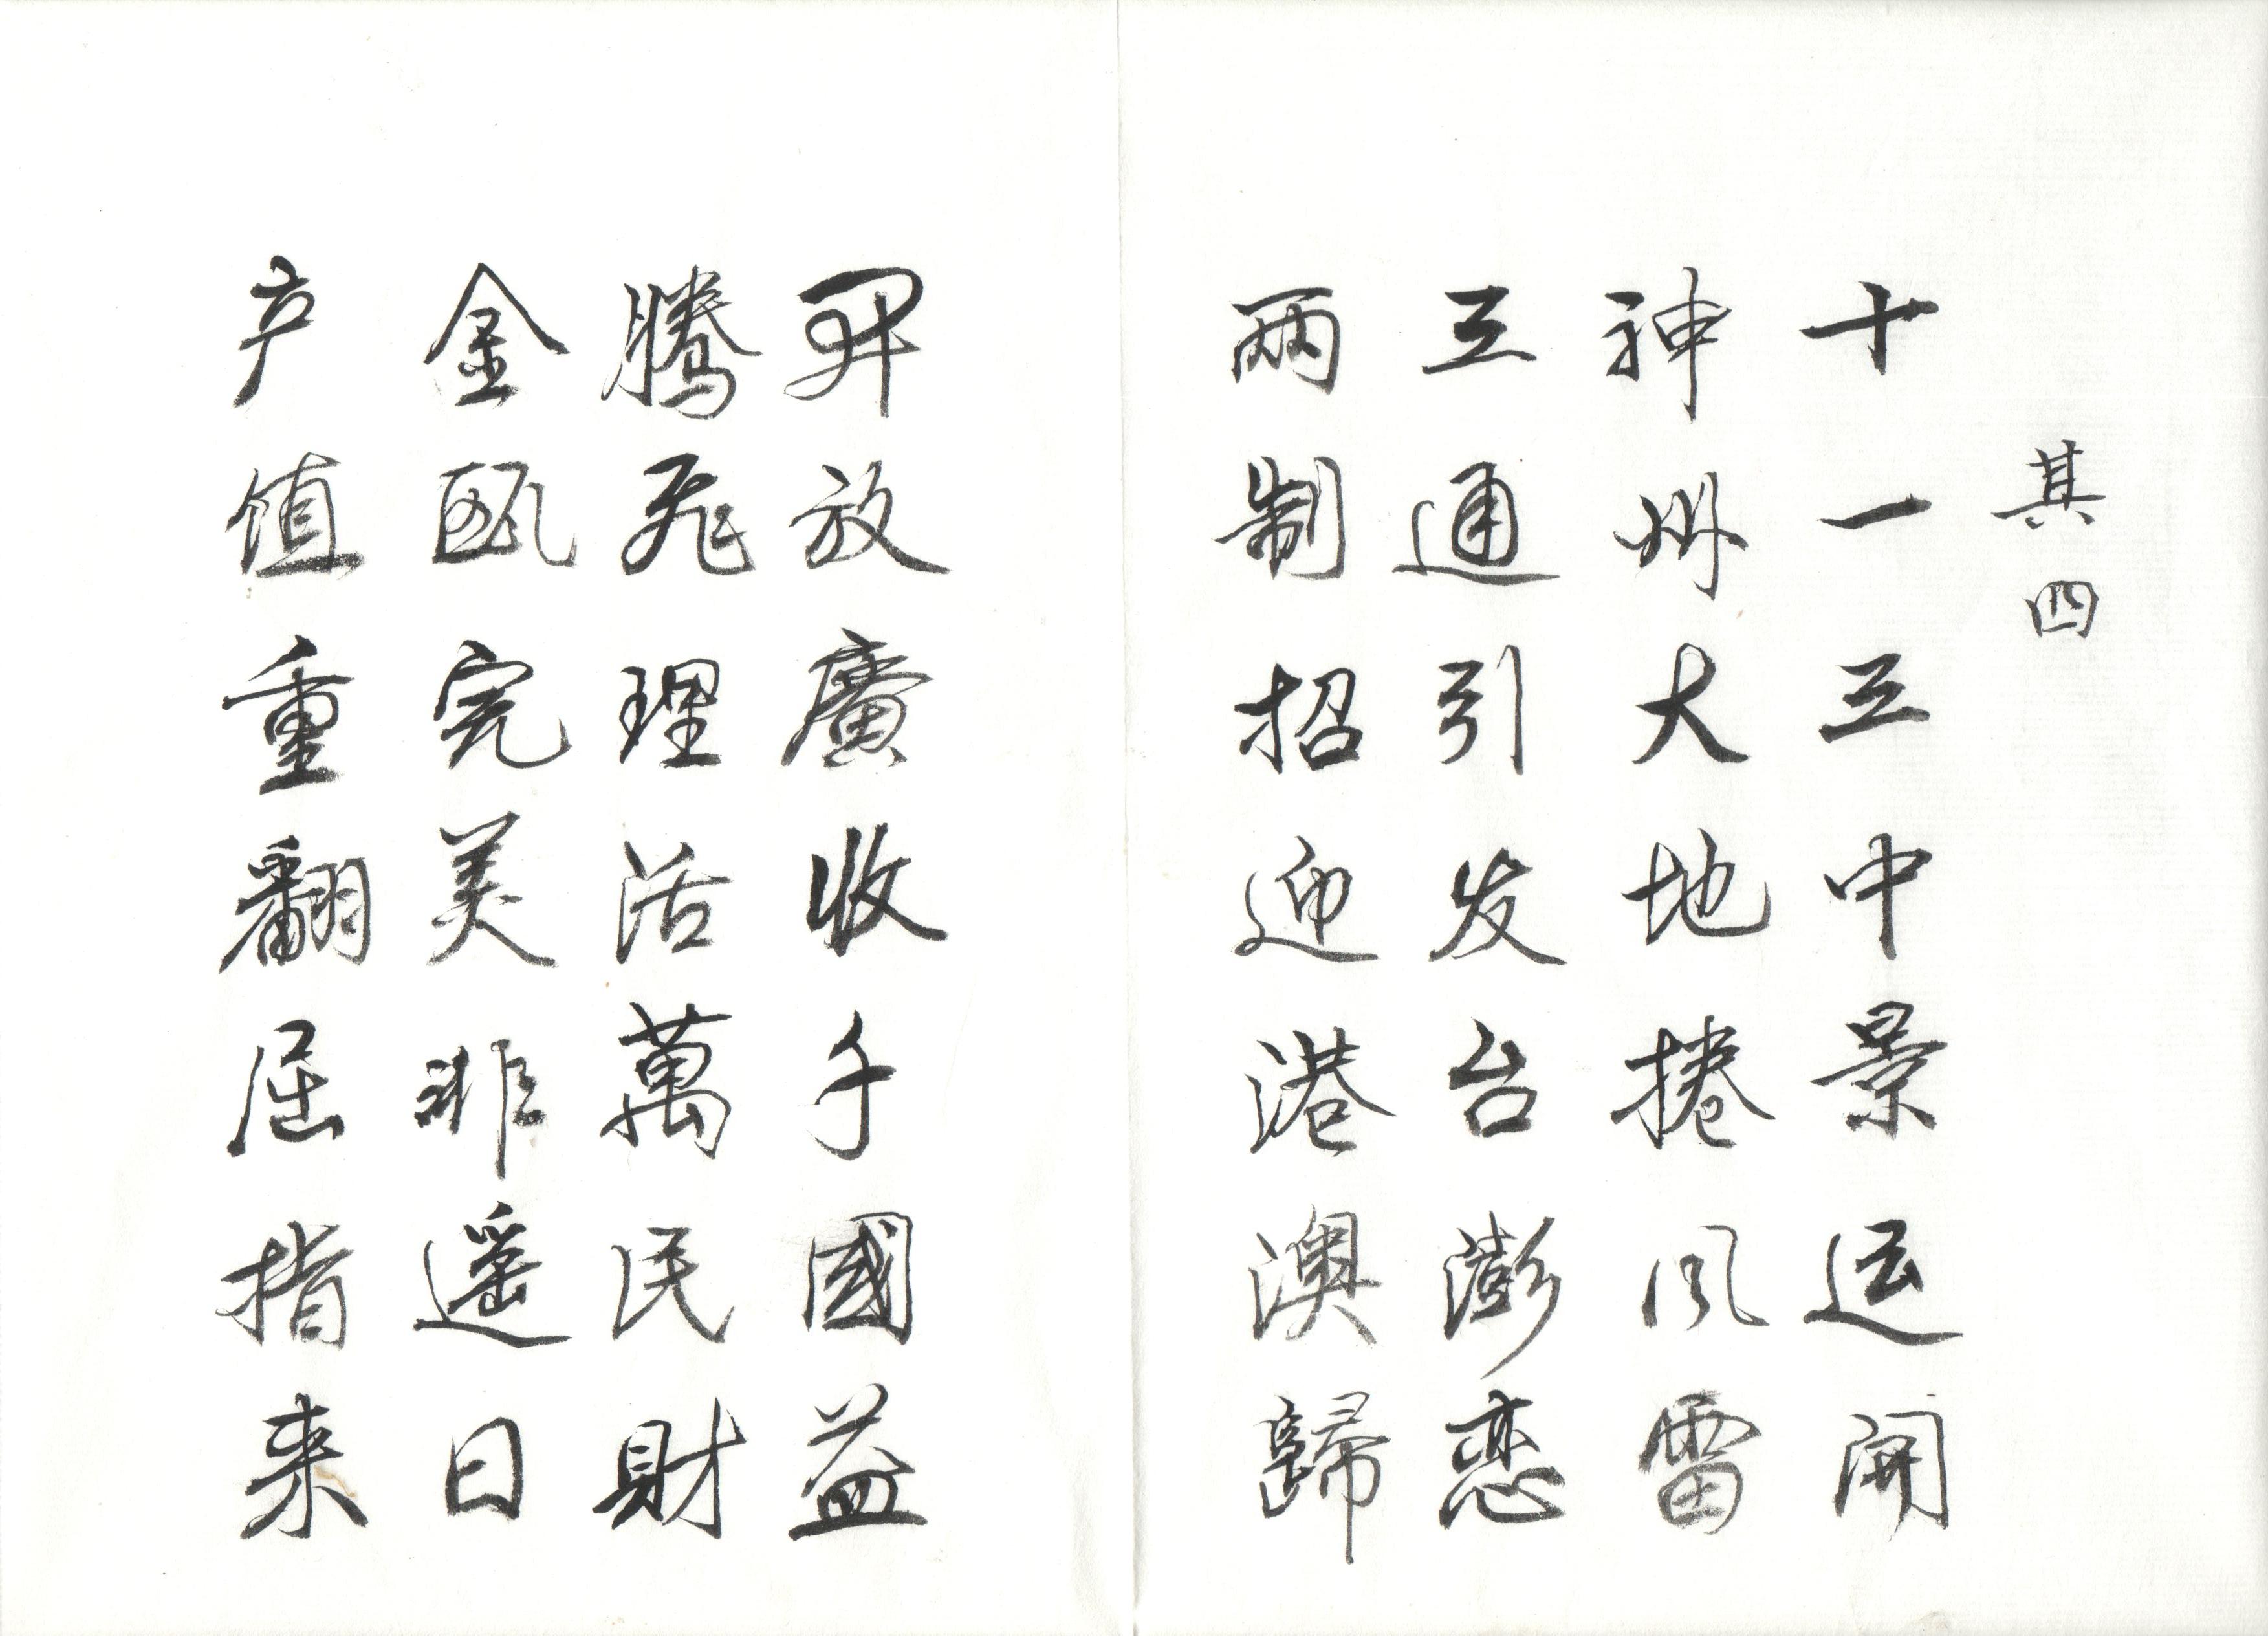 其四
十一三中景运開
神州大地捲风雷
三通引发台澎恋
两制招迎港澳歸
开放廣收千國益
騰飛理活萬民財
金瓯完美非遥日
产值重翻屈指来